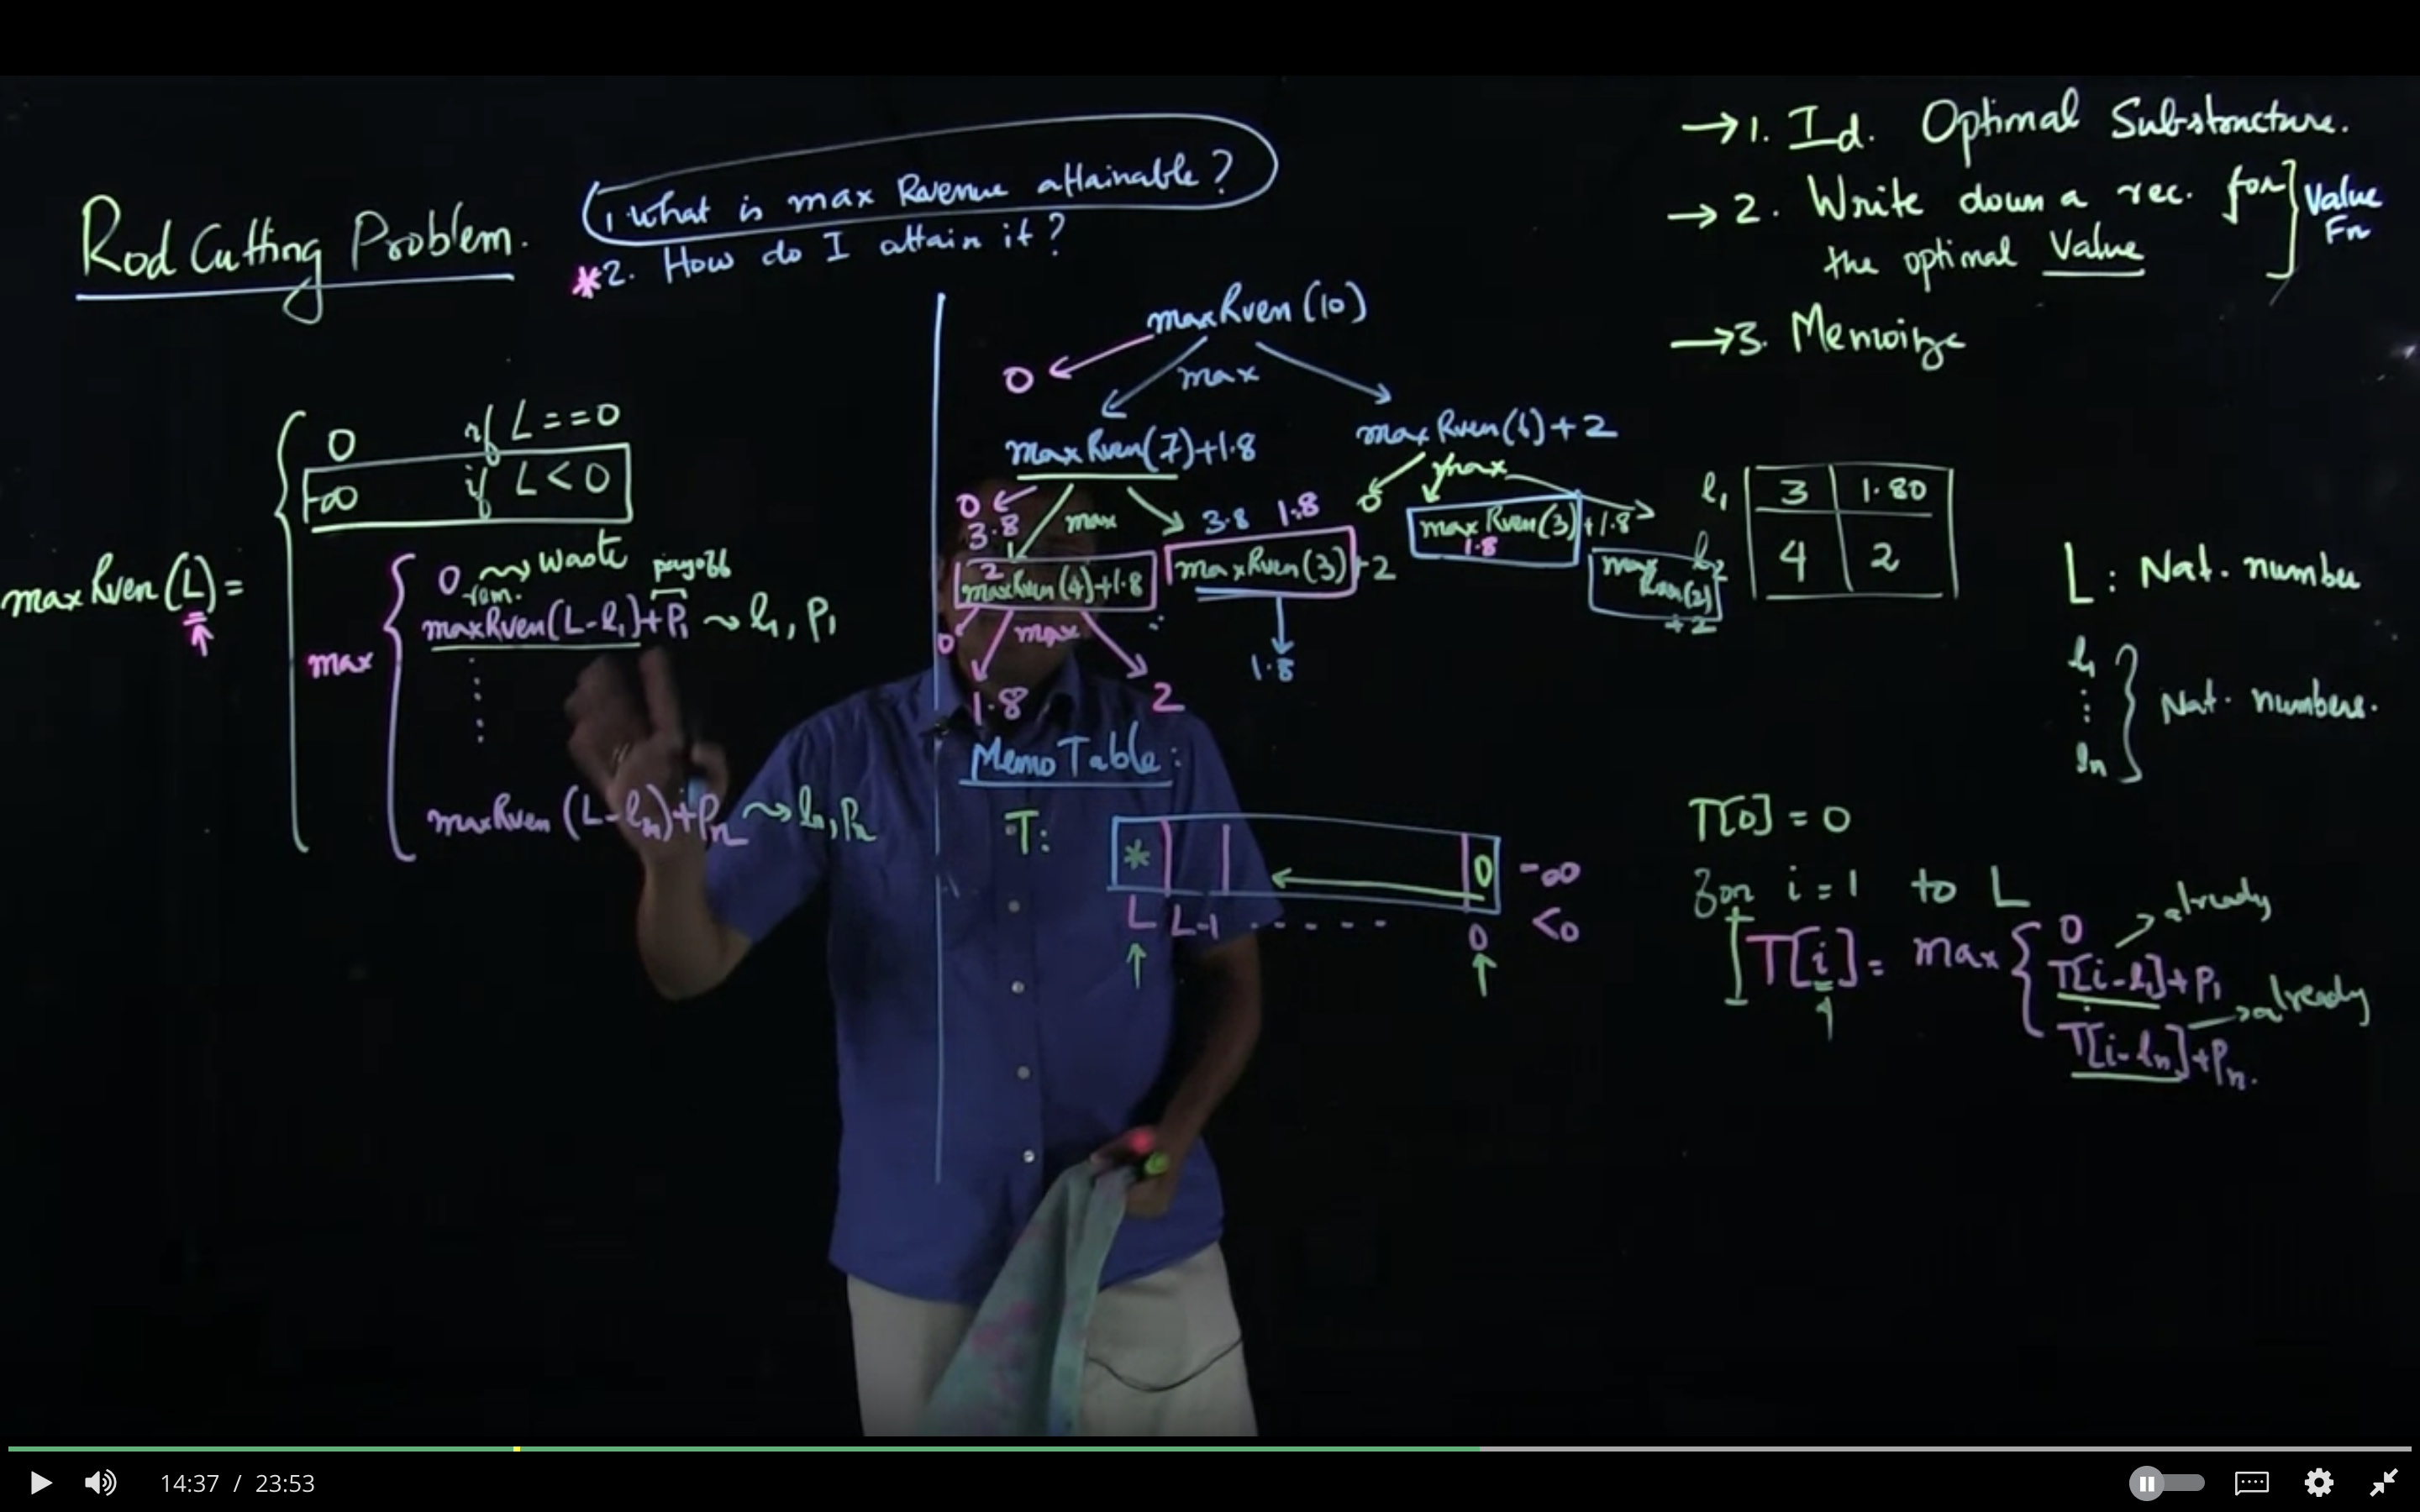 Rod Cutting Problem.
1 What is max Revenue attainable?
*2. How do I attain it?
→ 1. Id. Optimal Substructure.
→ 2. Write down a rec. for
the optimal Value
Value
Fn
→ 3. Memoize
maxRven(L) =
0 if L==0
-∞ if L<0
max
0 ⇝ waste
rem.
payoff
maxRven(L-l₁)+P₁ ⇝ l₁, P₁
maxRven(L-lₙ)+Pₙ ⇝ lₙ, Pₙ
maxRven(10)
0
max
maxRven(7)+1.8
maxRven(6)+2
0
3.8
max
3.8 1.8
0
max
2
maxRven(4)+1.8
maxRven(3)+2
maxRven(3)+1.8
1.8
maxRven(2)
+2
0
max
1.8
2
1.8
l₁ 3 1.80
l₂ 4 2
L: Nat. number
l₁
⋮
lₙ
Nat. numbers.
Memo Table:
T:
* 0 -∞
L L-1 ...... 0 <0
T[0] = 0
for i=1 to L
T[i] = max
0
already
T[i-l₁]+P₁
already
T[i-lₙ]+Pₙ.
14:37 / 23:53